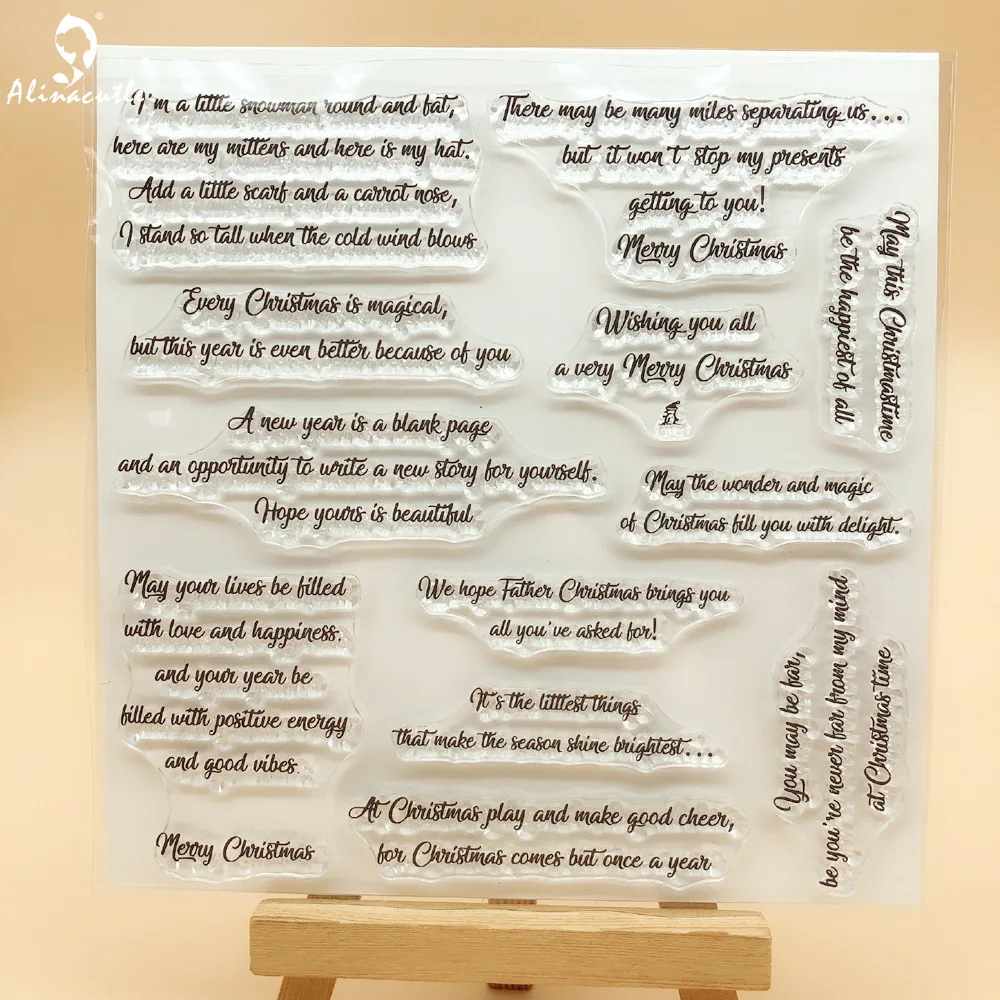 Alinacutle
I'm a little snowman round and fat,
here are my mittens and here is my hat.
Add a little scarf and a carrot nose,
I stand so tall when the cold wind blows
There may be many miles separating us...
but it won't stop my presents
getting to you!
Merry Christmas
May this Christmastime
be the happiest of all
Every Christmas is magical,
but this year is even better because of you
Wishing you all
a very Merry Christmas
A new year is a blank page
and an opportunity to write a new story for yourself.
Hope yours is beautiful
May the wonder and magic
of Christmas fill you with delight.
May your lives be filled
with love and happiness,
and your year be
filled with positive energy
and good vibes.
Merry Christmas
We hope Father Christmas brings you
all you've asked for!
It's the littlest things
that make the season shine brightest...
At Christmas play and make good cheer,
for Christmas comes but once a year
You may be far,
be you're never far from my mind
at Christmas time